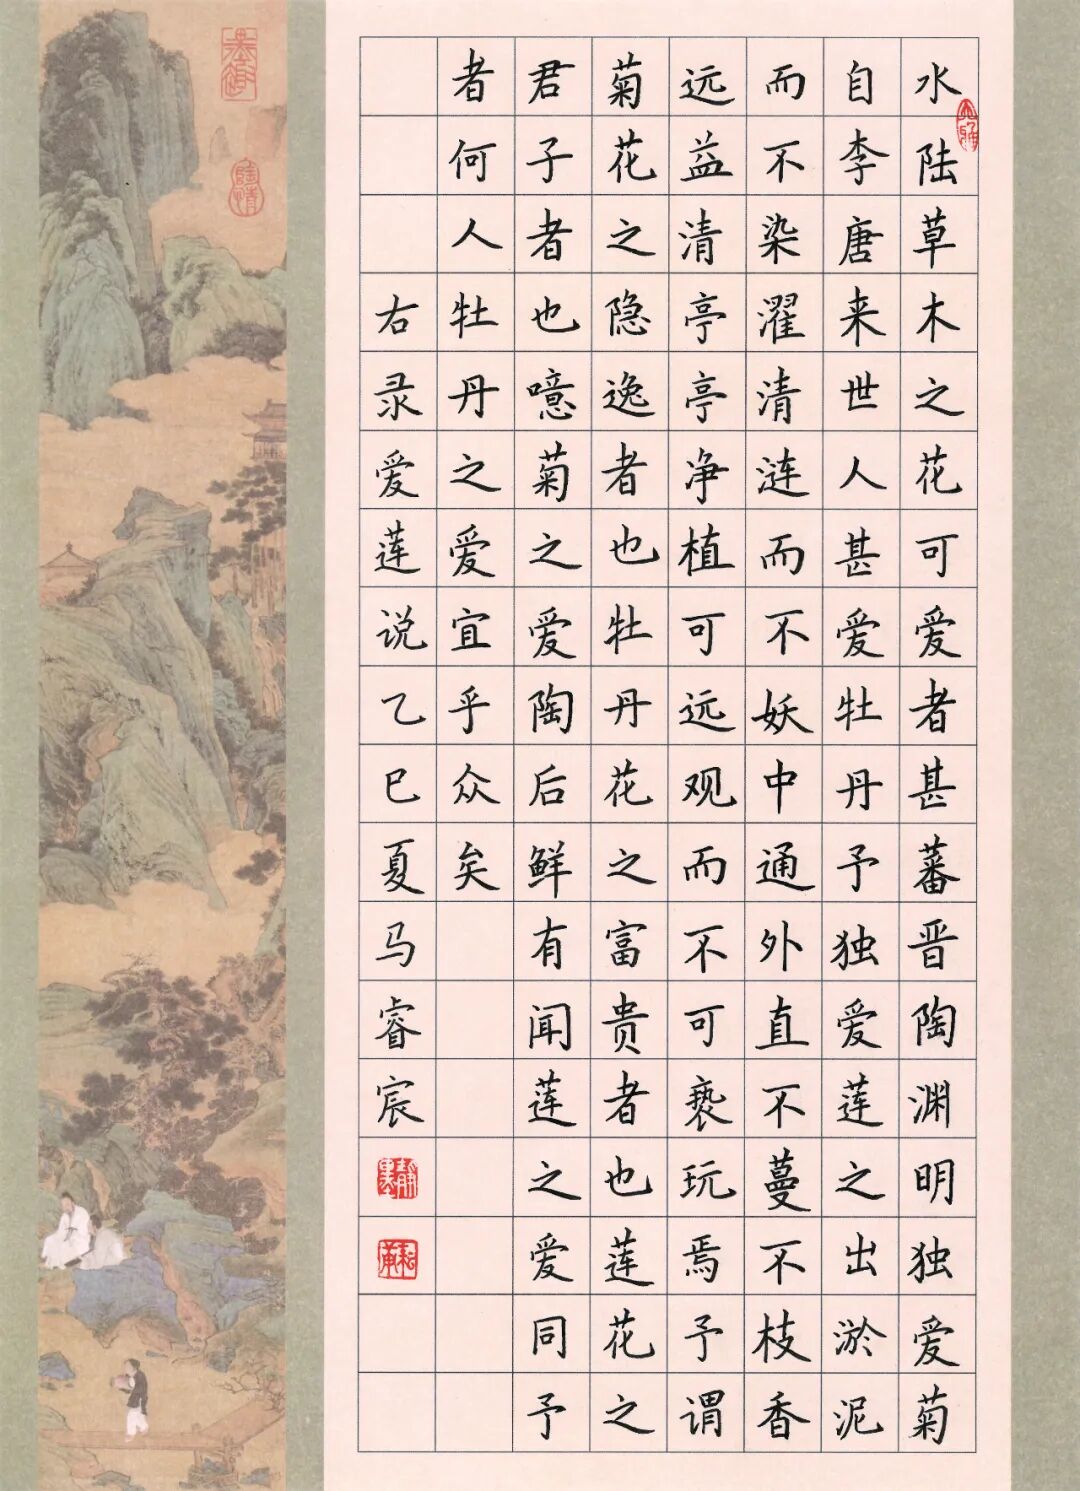 水陆草木之花可爱者甚蕃晋陶渊明独爱菊
自李唐来世人甚爱牡丹予独爱莲之出淤泥
而不染濯清涟而不妖中通外直不蔓不枝香
远益清亭亭净植可远观而不可亵玩焉予谓
菊花之隐逸者也牡丹花之富贵者也莲花之
君子者也噫菊之爱陶后鲜有闻莲之爱同予
者何人牡丹之爱宜乎众矣
右录爱莲说乙巳夏马睿宸
墨趣
陶情